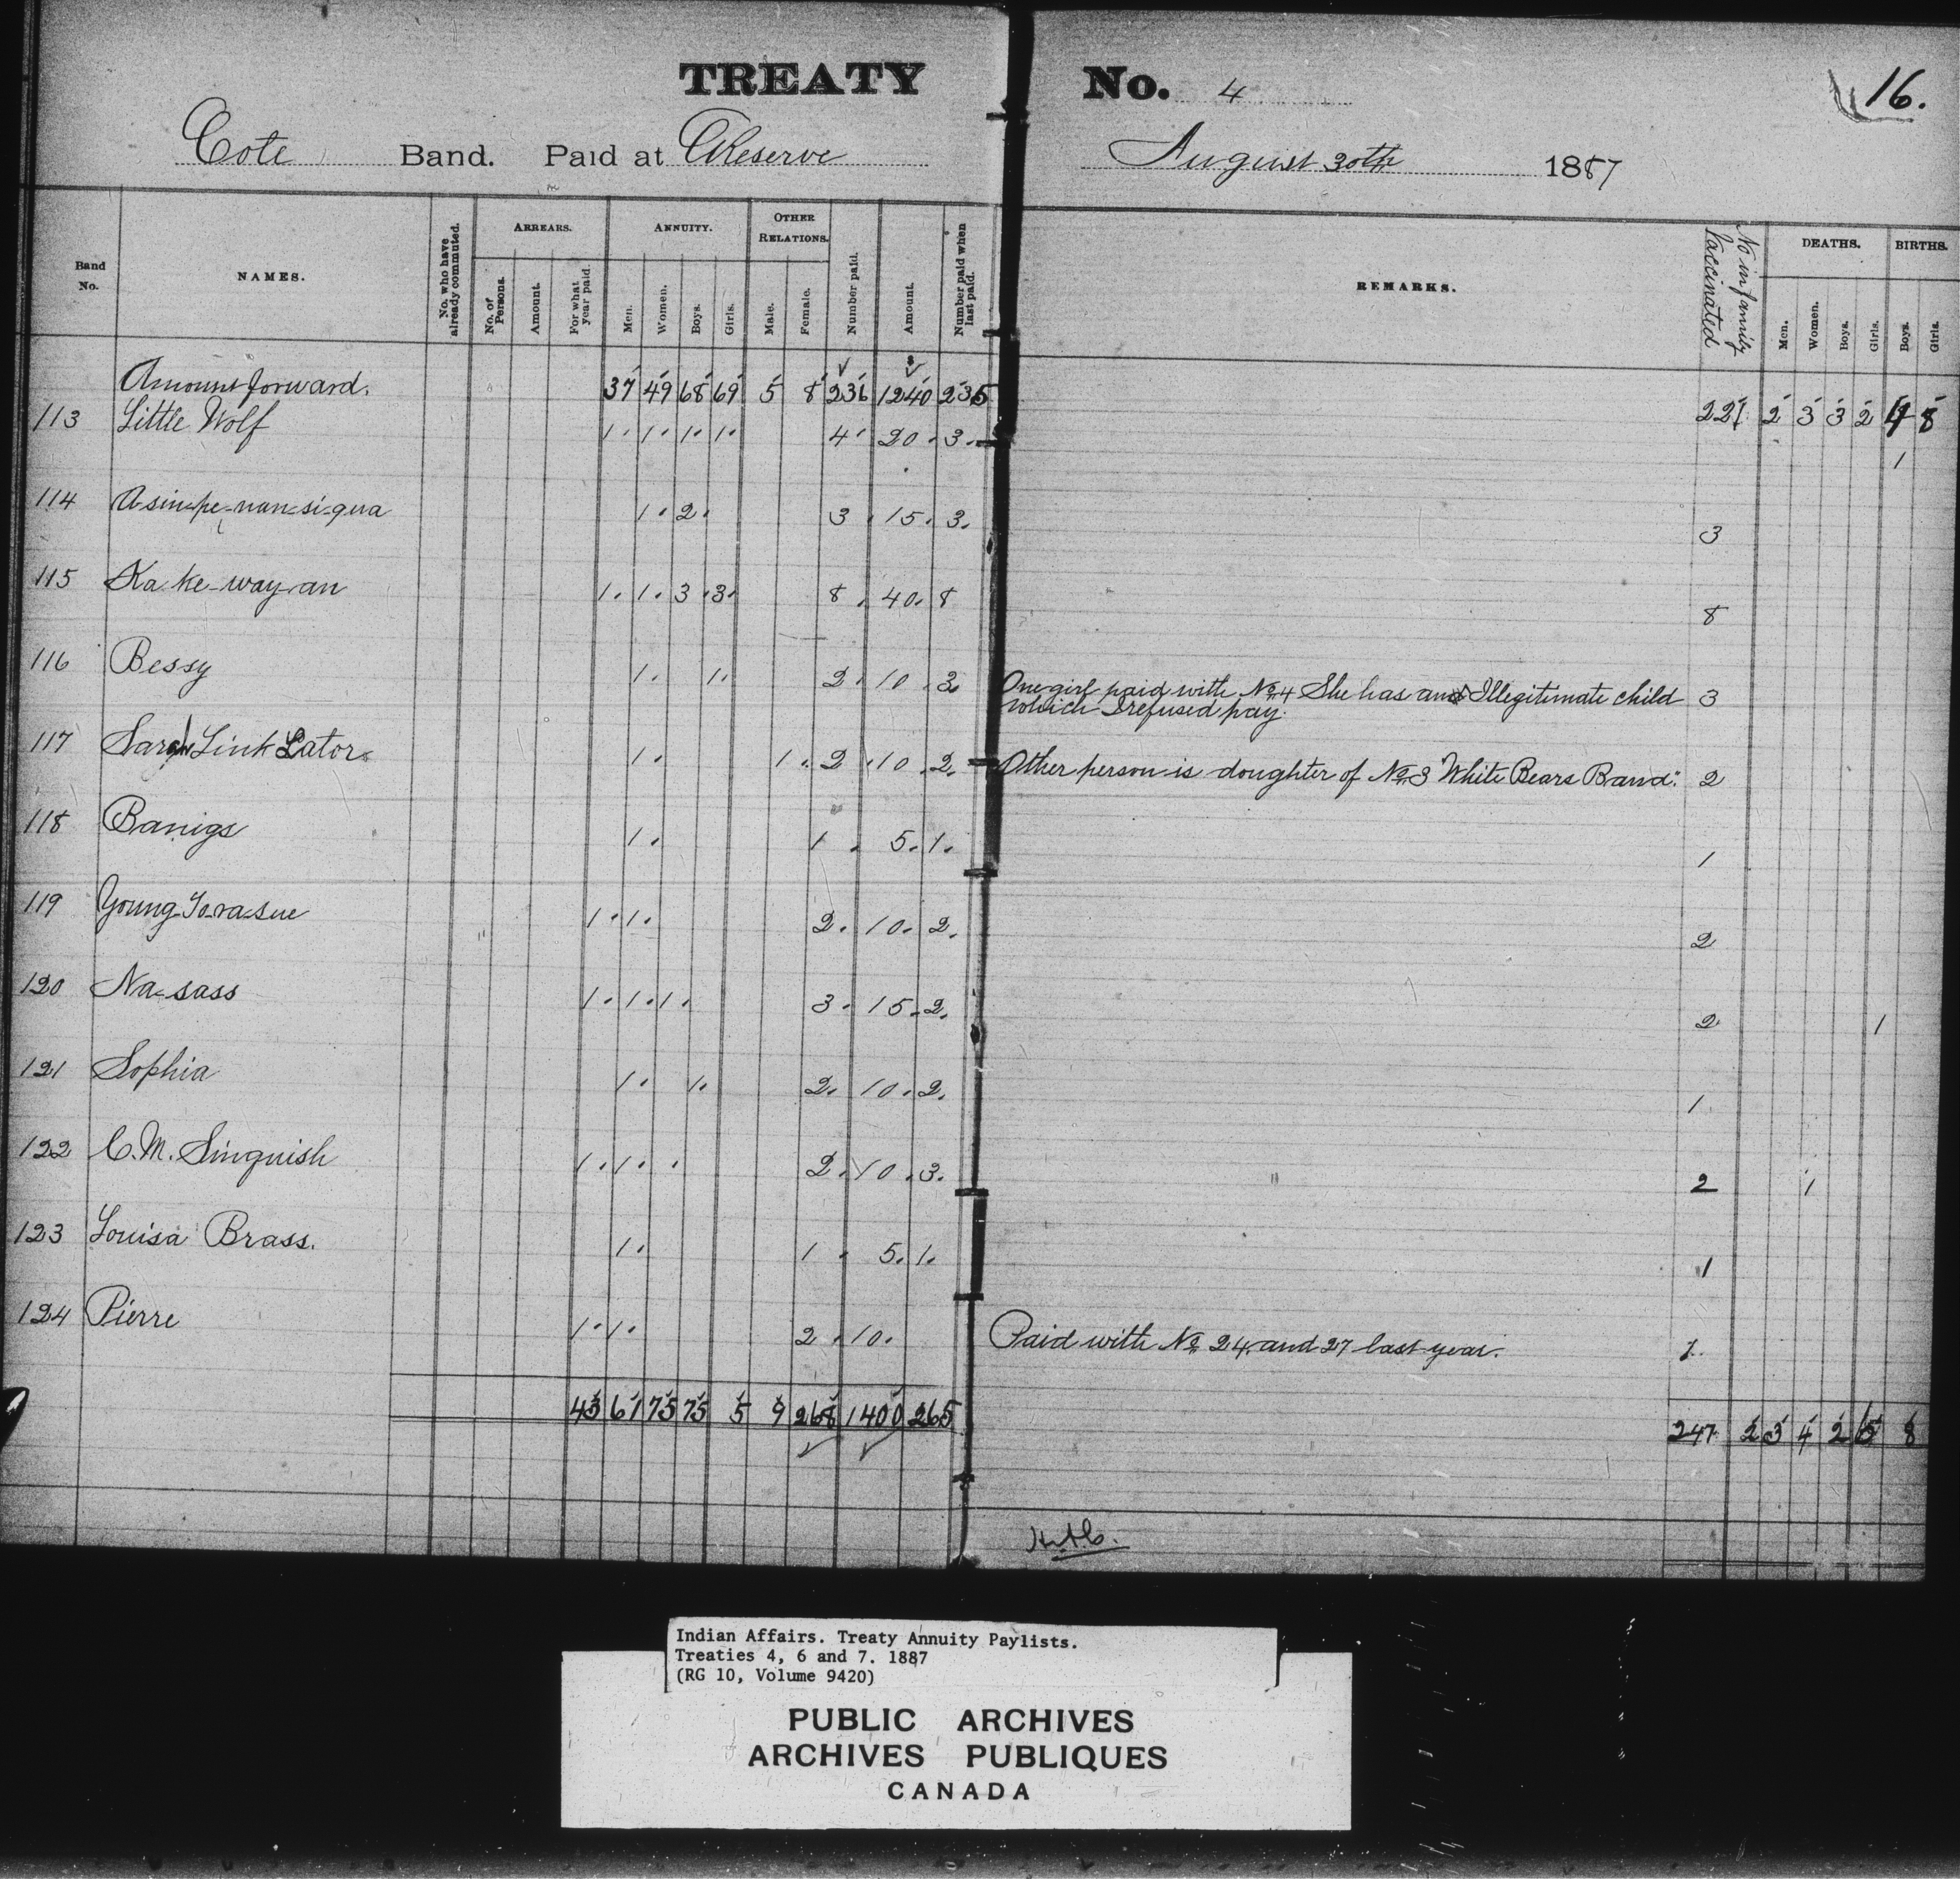 TREATY No. 4
16.
Cote Band. Paid at Reserve August 30th 1887
Band No. NAMES. No. who have already commuted. ARREARS. No. of Persons. Amount. For what year paid. ANNUITY. Men. Women. Boys. Girls. OTHER RELATIONS. Male. Female. Number paid. Amount. Number paid when last paid. REMARKS. No in family Vaccinated DEATHS. Men. Women. Boys. Girls. BIRTHS. Boys. Girls.
Amount forward. 37 49 68 69 5 8 236 1240 235 221 2 3 3 2 4 8
113 Little Wolf 1 1 1 1 4 20 3 1
114 A-sin-pe-nan-si-qua 1 2 3 15 3 3
115 Ka ke-way-an 1 1 3 3 8 40 8 8
116 Bessy 1 1 2 10 3 One girl paid with No. 4 She has an Illegitimate child 3
which I refused pay.
117 Sarah Link Lator 1 1 2 10 2 Other person is doughter of No. 3 White Bears Band. 2
118 Banigs 1 1 5 1 1
119 Young 1 1 2 10 2 2
120 Na-sass 1 1 1 3 15 2 2 1
121 Sophia 1 1 2 10 2 1
122 C. M. Singuish 1 1 2 10 3 2 1
123 Louisa Brass. 1 1 5 1 1
124 Pierre 1 1 2 10 Paid with No. 24 and 27 last year.
43 61 75 75 5 9 268 1400 265 247 2 3 4 2 5 8
Indian Affairs. Treaty Annuity Paylists.
Treaties 4, 6 and 7. 1887
(RG 10, Volume 9420)
PUBLIC ARCHIVES
ARCHIVES PUBLIQUES
CANADA